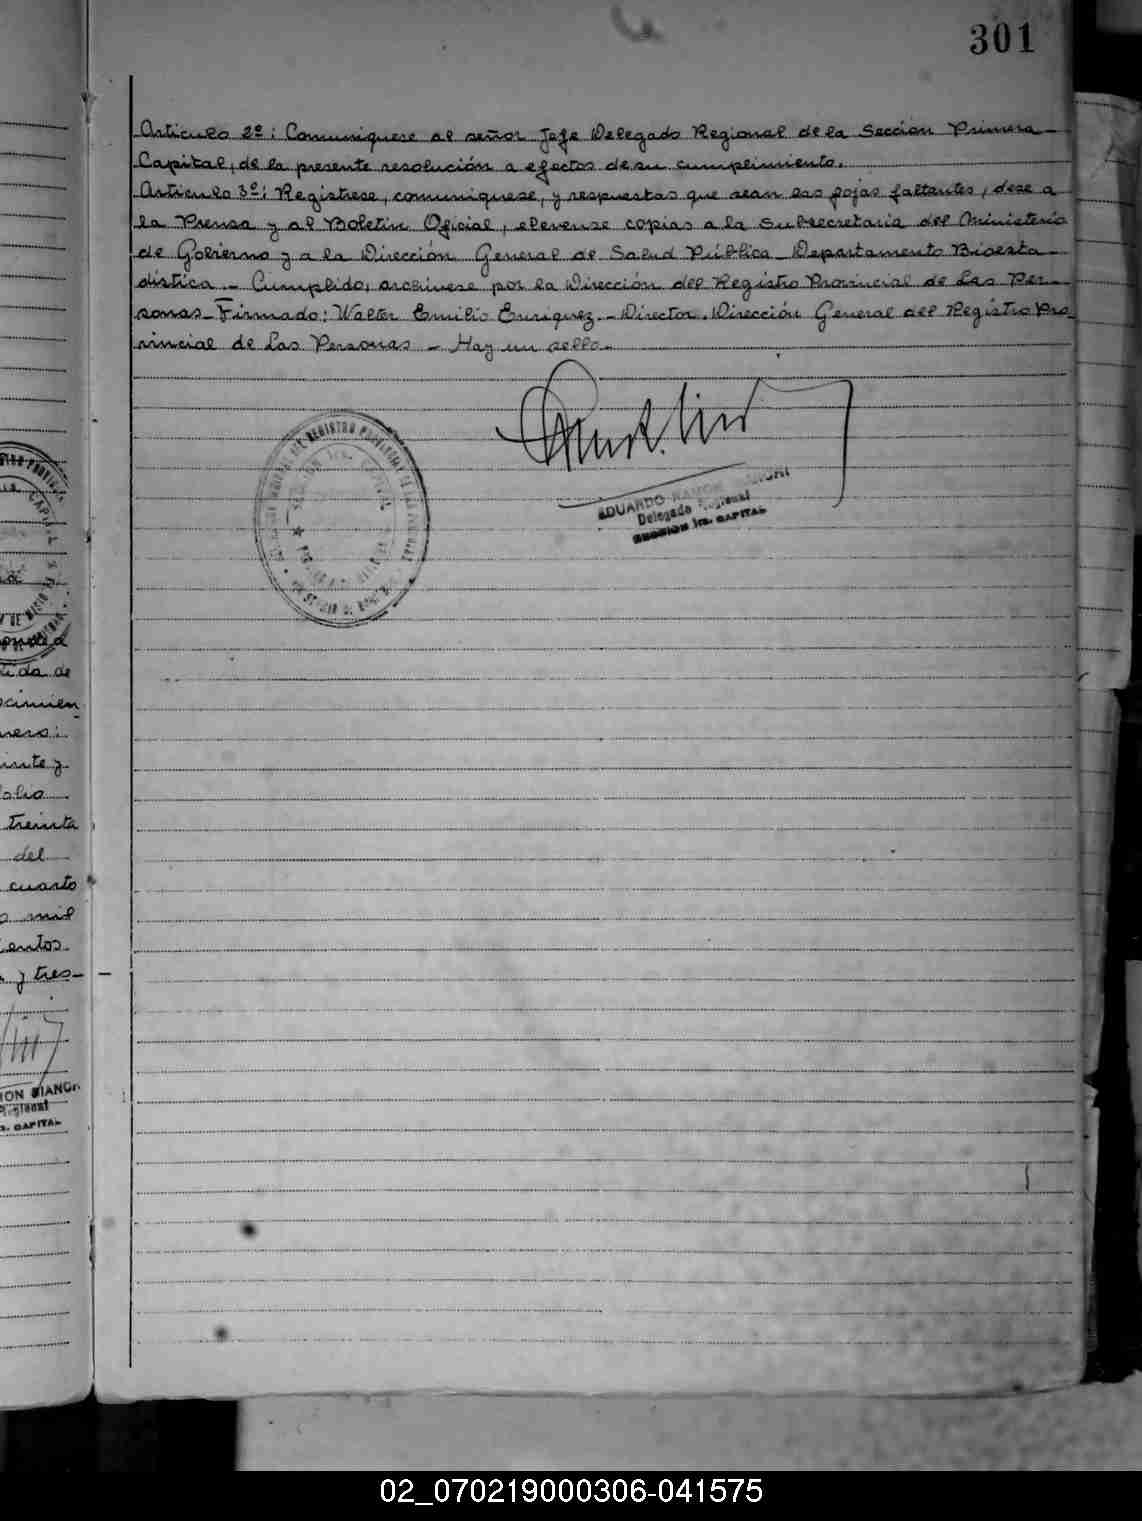 301
Articulo 2º: Comuniquese al señor Jefe Delegado Regional de la Sección Primera
Capital, de la presente resolución a efectos de su cumplimiento.
Artículo 3º: Registrese, comuniquese, y respuestas que sean las fojas faltantes, dese a
la Prensa y al Boletin Oficial, elevense copias a la Subsecretaria del Ministerio
de Gobierno y a la Dirección General de Salud Pública - Departamento Bioesta-
distica. - Cumplido, archivese por la Dirección del Registro Provincial de Las Per-
sonas - Firmado: Walter Emilio Enriquez. - Director. Dirección General del Registro Pro
vincial de Las Personas - Hay un sello. -
EDUARDO RAMON BIANCHI
Delegado Regional
SECCION 1ra. CAPITAL
tida de
cimien
nero:
inte y
folio
treinta
del
cuarto
mil
entos
y tres -
ION BIANCH
Regional
CAPITAL
02_070219000306-041575